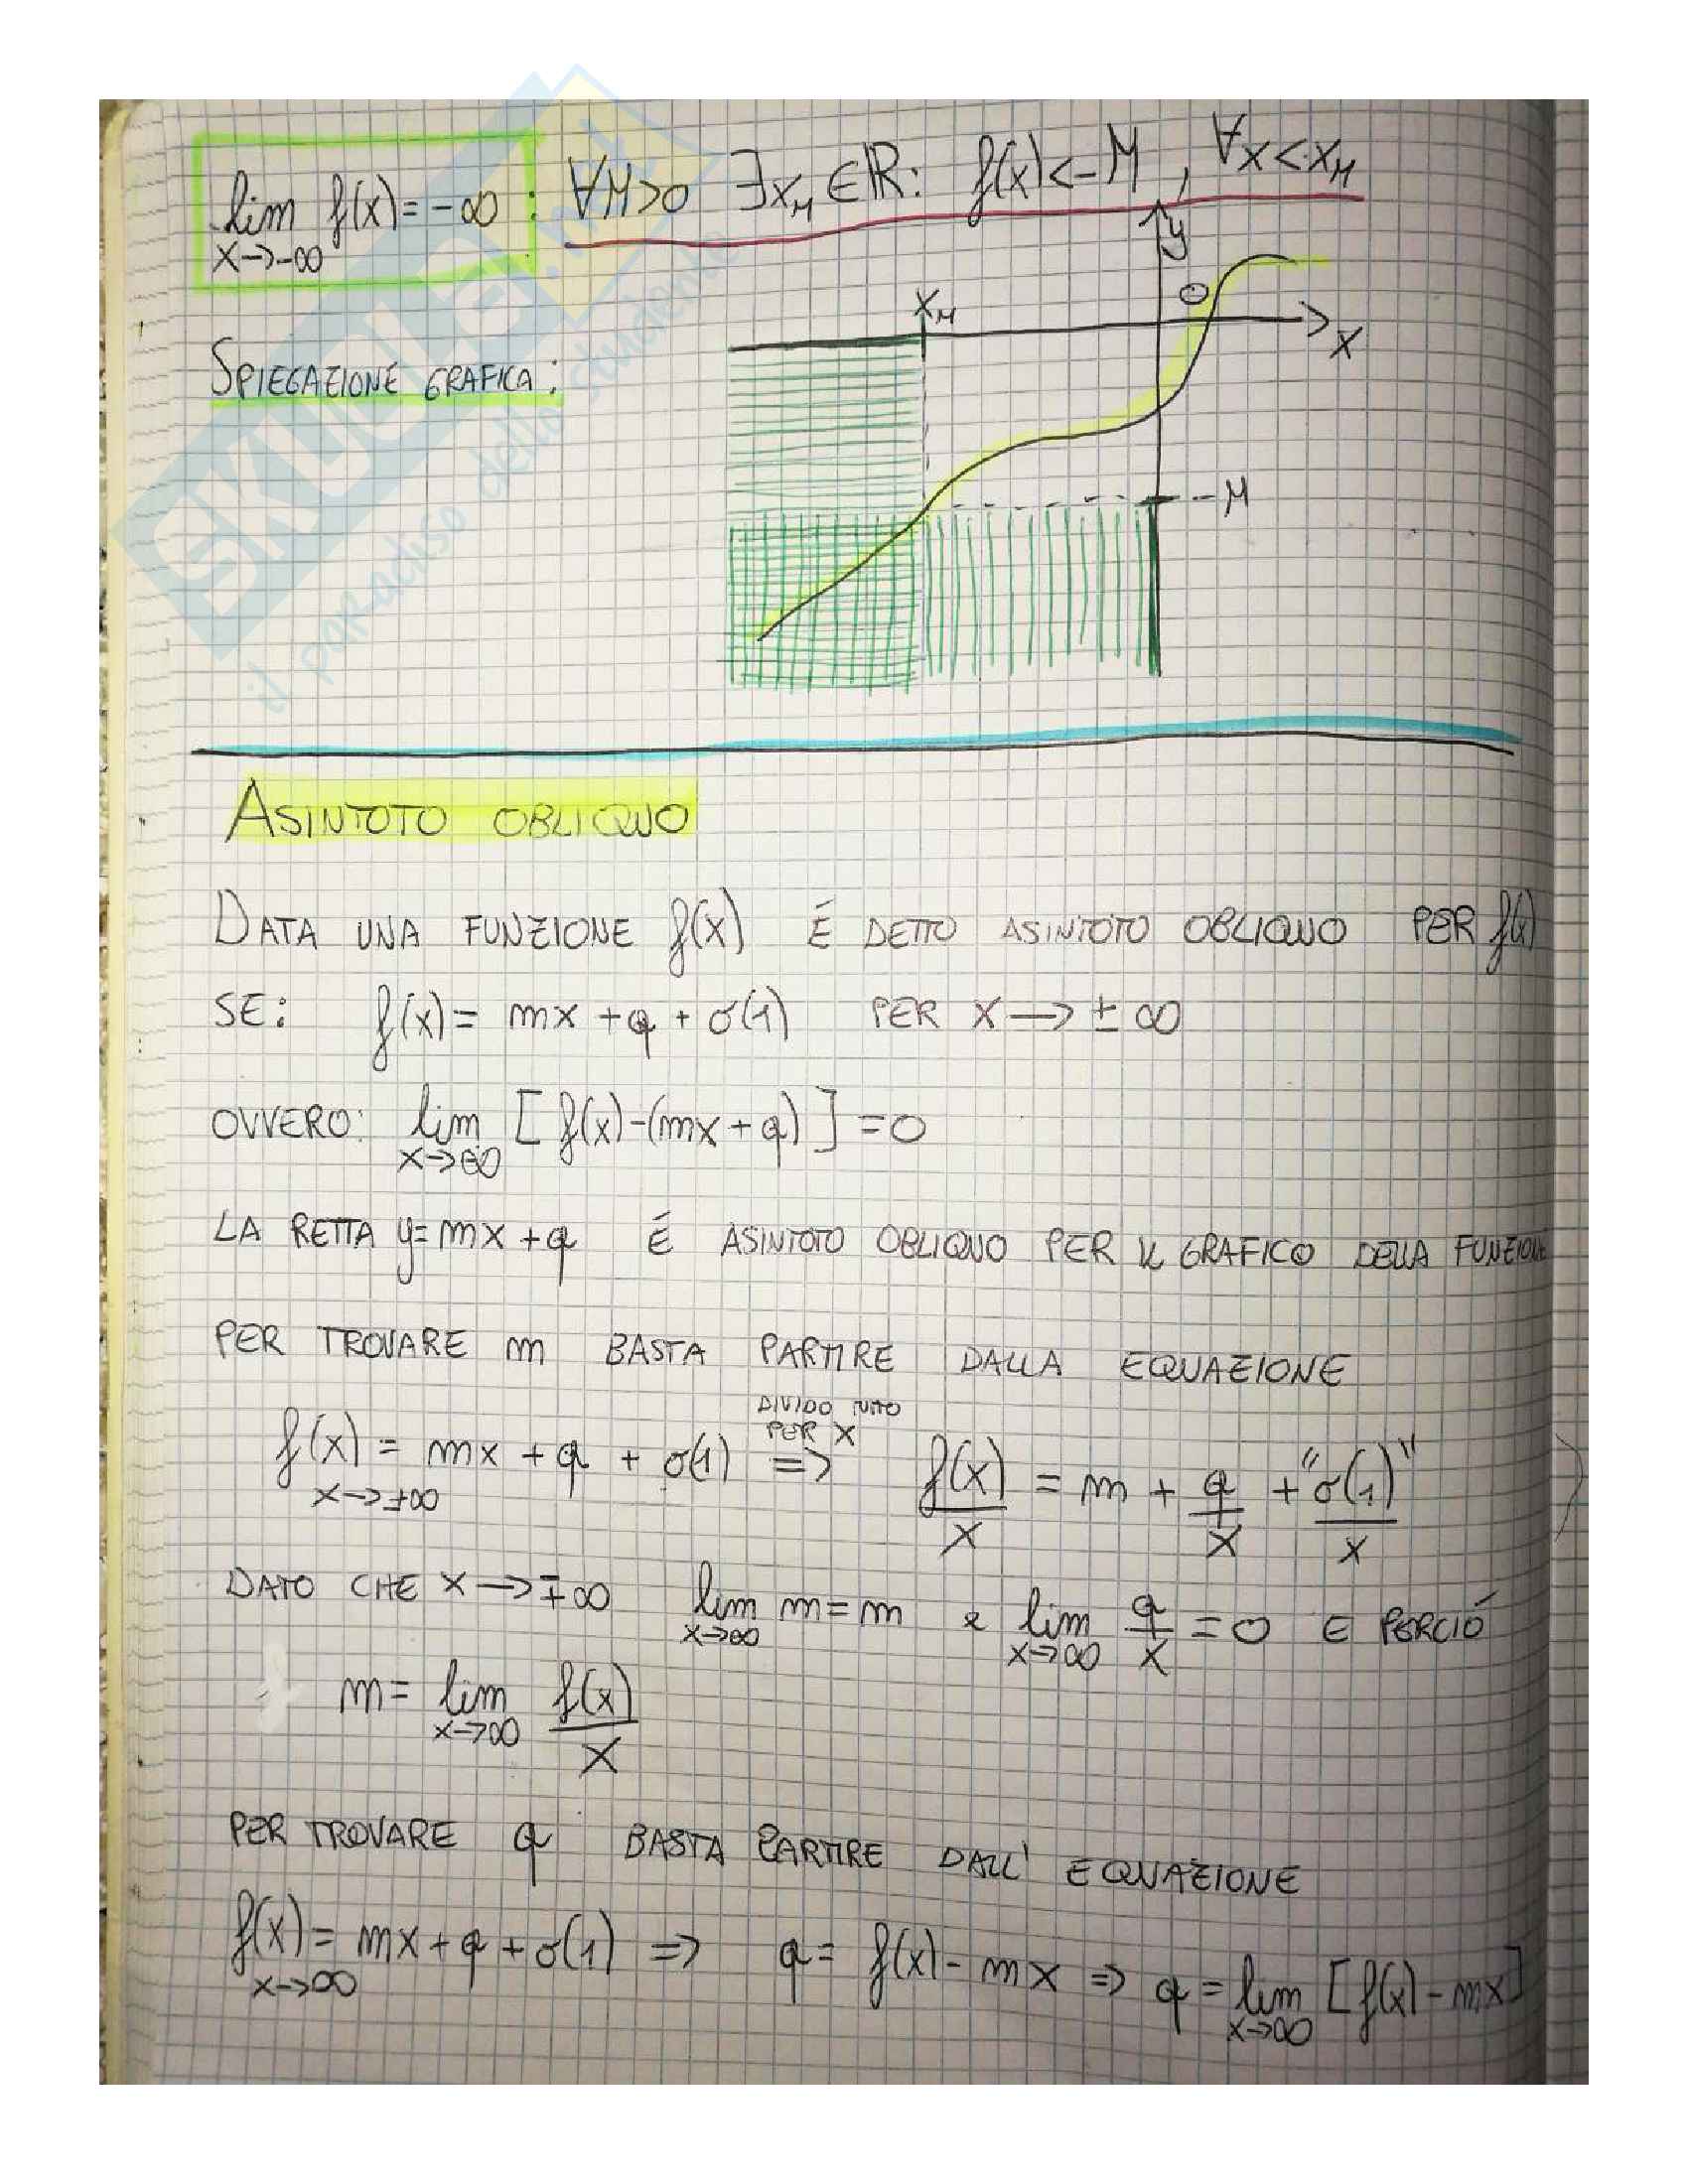 lim f(x) = -∞ : ∀M>0 ∃x_M ∈ ℝ: f(x)<-M , ∀x<x_M
x→-∞
y
0
x_M
x
SPIEGAZIONE GRAFICA:
-M
SKUOLA.net
il paradiso dello studente
ASINTOTO OBLIQUO
DATA UNA FUNZIONE f(x) É DETTO ASINTOTO OBLIQUO PER f(x)
SE: f(x) = mx + q + o(1) PER x → ± ∞
OVVERO: lim [ f(x)-(mx+q) ] = 0
x→∞
LA RETTA y=mx+q É ASINTOTO OBLIQUO PER IL GRAFICO DELLA FUNZIONE
PER TROVARE m BASTA PARTIRE DALLA EQUAZIONE
DIVIDO TUTTO
PER X
f(x) = mx + q + o(1) => f(x)/x = m + q/x + "o(1)"/x
x→±∞
DATO CHE x→∓∞ lim m = m e lim q/x = 0 E PERCIÓ
x→∞ x→∞
m = lim f(x)/x
x→∞
PER TROVARE q BASTA PARTIRE DALL' EQUAZIONE
f(x) = mx+q+o(1) => q = f(x)-mx => q = lim [f(x)-mx]
x→∞ x→∞